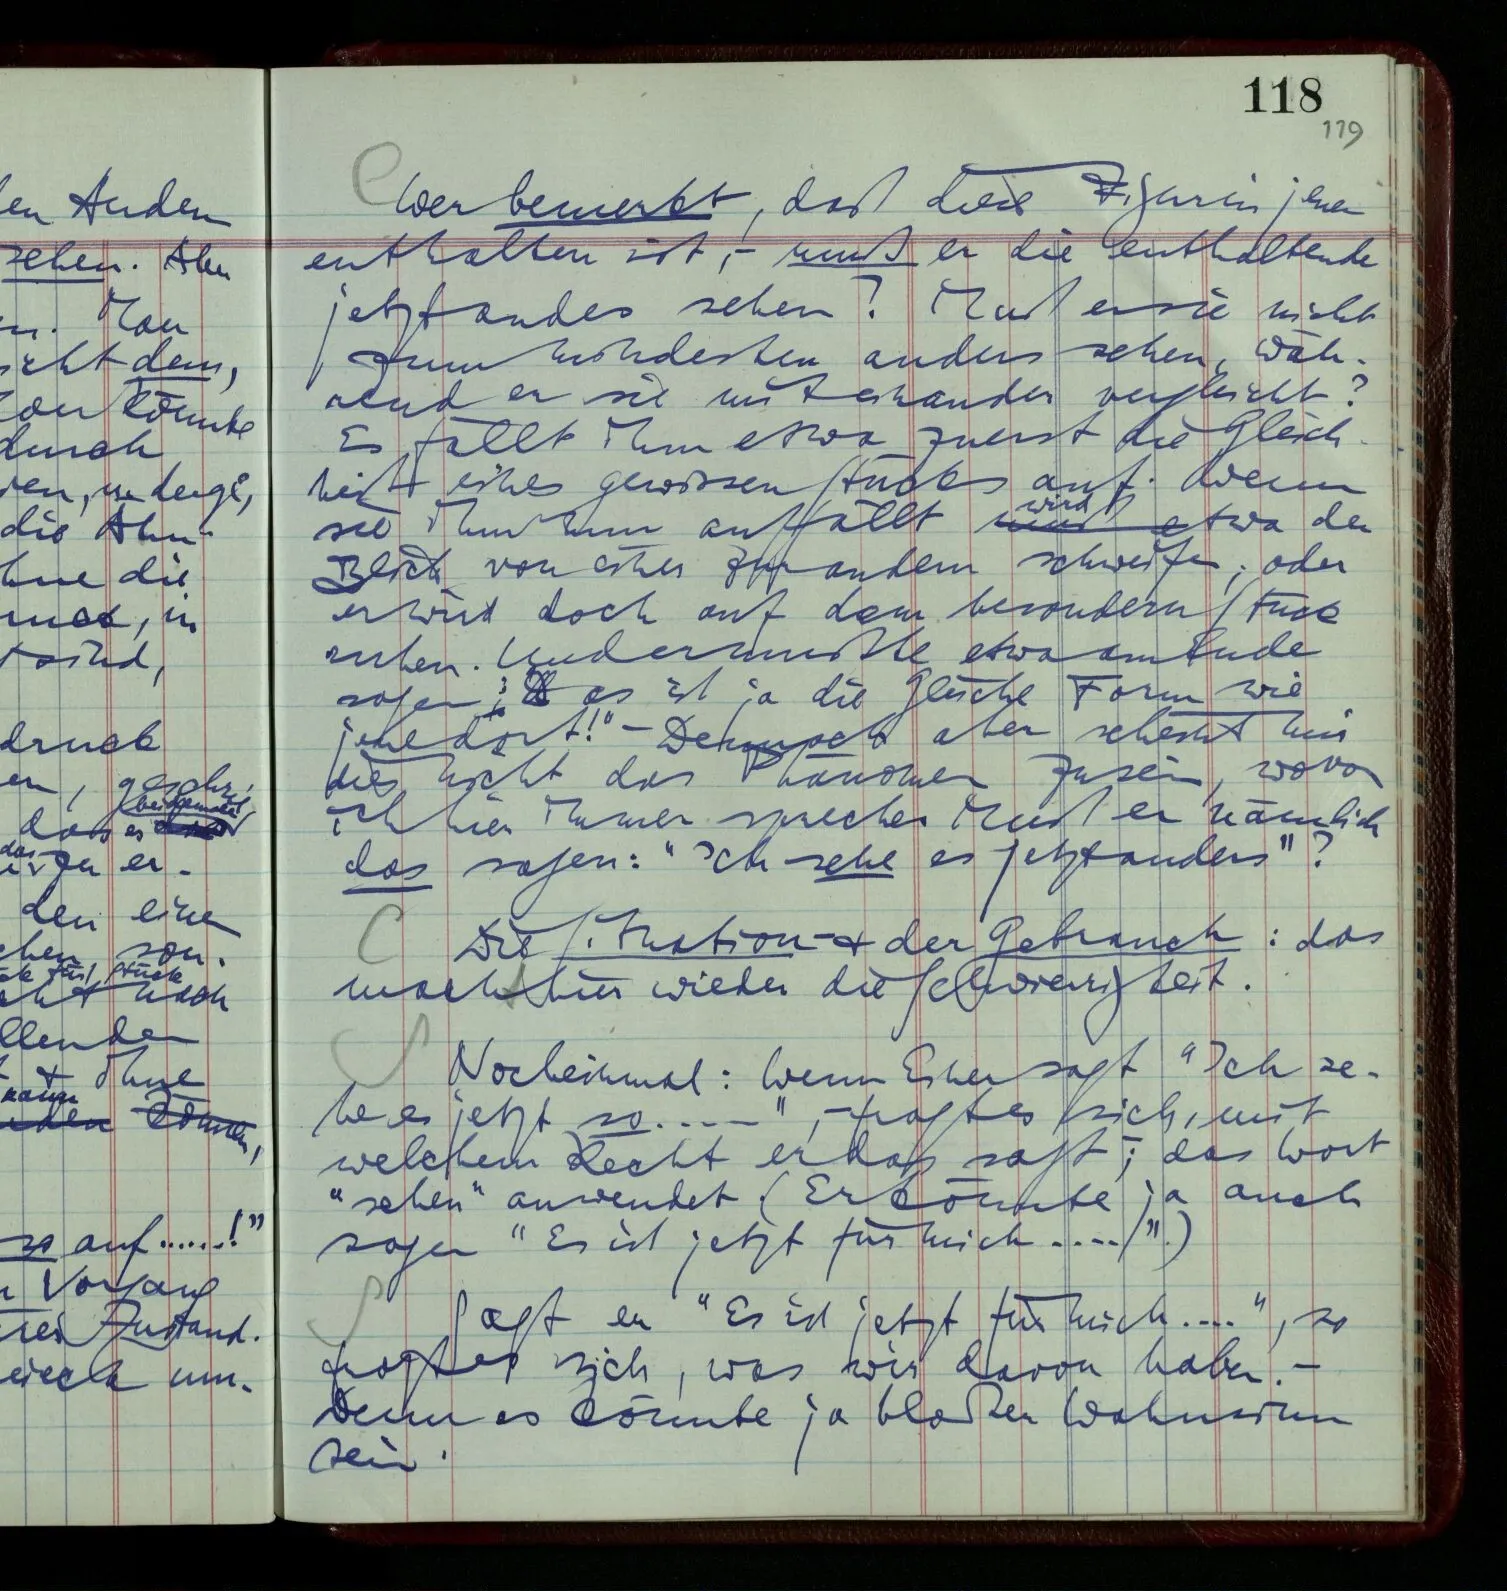 118
119
Wer bemerkt, daß diese Figur in jener
enthalten ist, – muß er die enthaltende
jetzt anders sehen? Muß er sie nicht
zum mindesten anders sehen, wäh-
rend er sie miteinander vergleicht?
Es fällt ihm etwa zuerst die Gleich-
heit eines gewissen Stücks auf. Wenn
wird
sie ihm nun auffällt muß etwa der
Blick von einer zur andern schweifen; oder
er wird doch auf dem besondern Stück
ruhen. Und er müßte etwa am Ende
sagen: " es ist ja die gleiche Form wie
jene dort!" – Dennoch aber scheint mir
dies nicht das Phänomen zu sein, wovon
ich hier immer spreche. Muß er nämlich
das sagen: "Ich sehe es jetzt anders"?
Die Situation & der Gebrauch: das
macht hier wieder die Schwierigkeit.
Nocheinmal: Wenn Einer sagt "Ich se-
he es jetzt so....", – fragt es sich, mit
welchem Recht er das sagt; das Wort
"sehen" anwendet. (Er könnte ja auch
sagen "Es ist jetzt für mich ....!".)
Sagt er "Es ist jetzt für mich....", so
fragt es sich, was wir davon haben. –
Denn es könnte ja bloßer Wahnsinn
sein.
den Andern
sehen. Aber
Man
nicht dem,
könnte
durch
die
in
sind,
druck
er
den eine
son-
für Stück
nach
& ihne
kann
können,
so auf......!"
Vorgang
Zustand.
um-